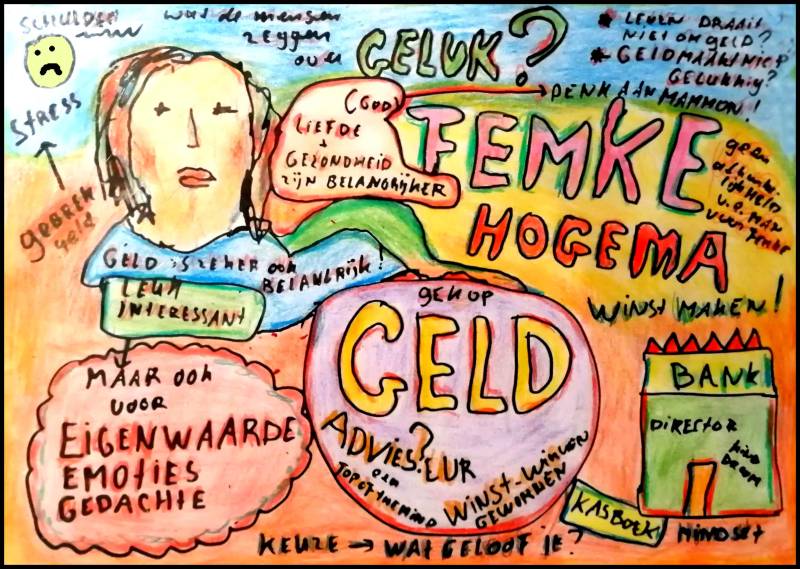 SCHULDEN
STRESS
GEBREK
geld
wat de mensen
zeggen
over
GELUK?
* LEVEN DRAAIT
NIET OM GELD?
* GELD MAAKT NIET
GELUKKIG?
DENK AAN
MAMMON!
(GOD)
LIEFDE
+
GEZONDHEID
ZIJN BELANGRIJKER
FEMKE
HOGEMA
geen
WINST MAKEN!
GELD IS ZEKER OOK
BELANGRIJK!
LEUK
INTERESSANT
MAAR OOK
VOOR
EIGENWAARDE
EMOTIES
GEDACHTE
GEK OP
GELD
ADVIES?EUR
WINST-WINNEN
GEWONNEN
BANK
DIRECTOR
KASBOEK
MINDSET
KEUZE → WAT GELOOF JE?